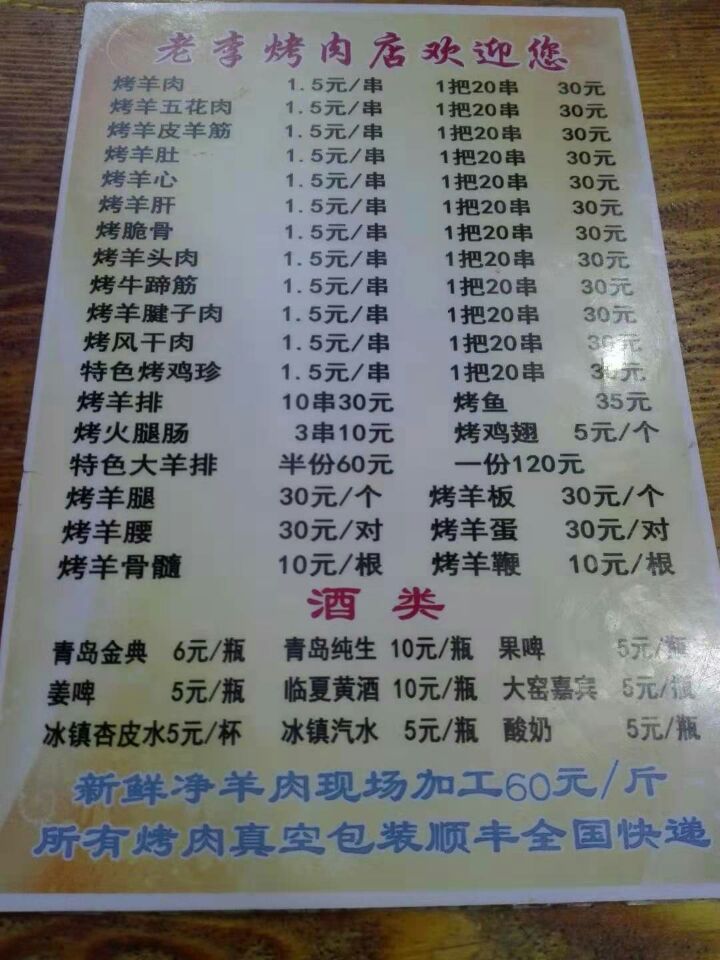 老李烤肉店欢迎您
烤羊肉 1.5元/串 1把20串 30元
烤羊五花肉 1.5元/串 1把20串 30元
烤羊皮羊筋 1.5元/串 1把20串 30元
烤羊肚 1.5元/串 1把20串 30元
烤羊心 1.5元/串 1把20串 30元
烤羊肝 1.5元/串 1把20串 30元
烤脆骨 1.5元/串 1把20串 30元
烤羊头肉 1.5元/串 1把20串 30元
烤牛蹄筋 1.5元/串 1把20串 30元
烤羊腱子肉 1.5元/串 1把20串 30元
烤风干肉 1.5元/串 1把20串 30元
特色烤鸡珍 1.5元/串 1把20串 30元
烤羊排 10串30元 烤鱼 35元
烤火腿肠 3串10元 烤鸡翅 5元/个
特色大羊排 半份60元 一份120元
烤羊腿 30元/个 烤羊板 30元/个
烤羊腰 30元/对 烤羊蛋 30元/对
烤羊骨髓 10元/根 烤羊鞭 10元/根
酒类
青岛金典 6元/瓶 青岛纯生 10元/瓶 果啤 5元/瓶
姜啤 5元/瓶 临夏黄酒 10元/瓶 大窑嘉宾 5元/瓶
冰镇杏皮水5元/杯 冰镇汽水 5元/瓶 酸奶 5元/瓶
新鲜净羊肉现场加工60元/斤
所有烤肉真空包装顺丰全国快递